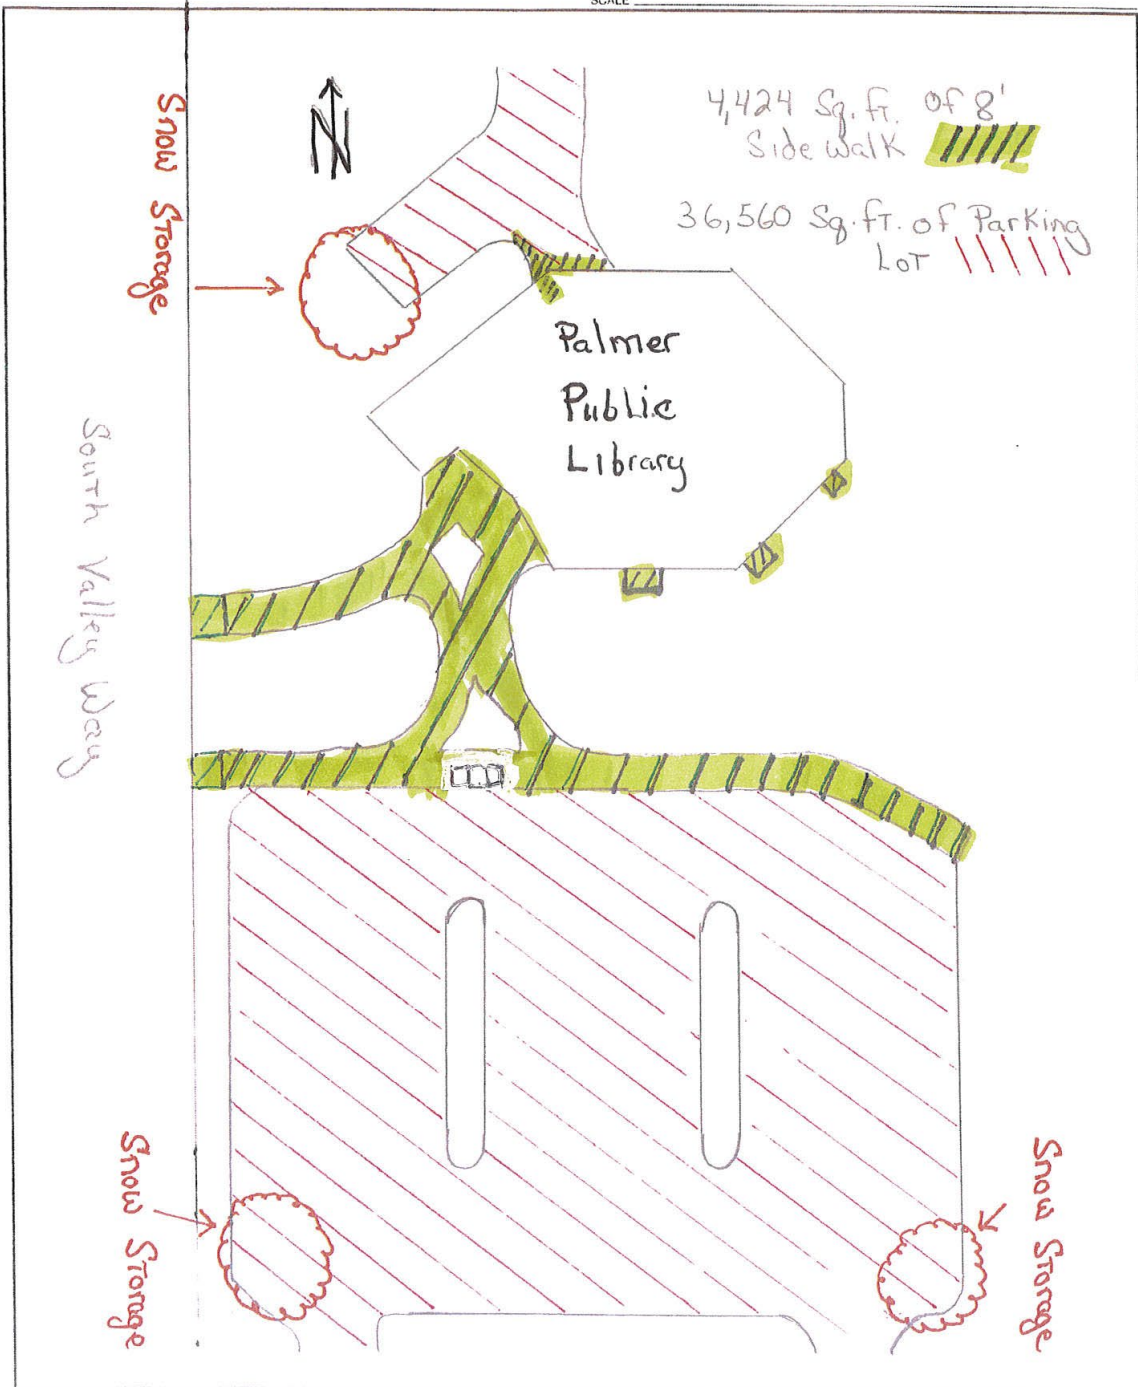 SCALE
4,424 Sq. ft. Of 8'
Side walk
36,560 Sq. ft. of Parking
Lot
N
Snow Storage
Palmer
Public
Library
South Valley Way
Snow Storage
Snow Storage